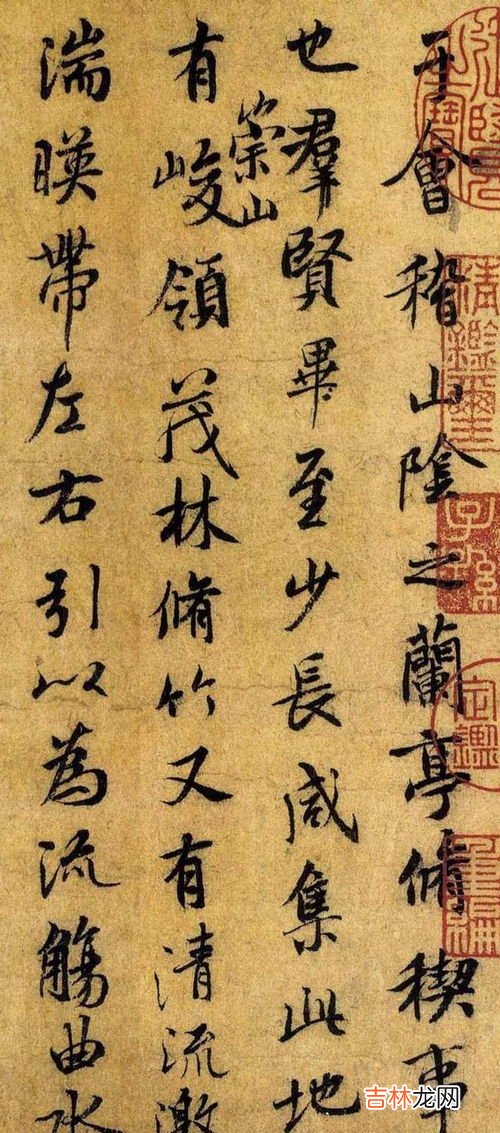 于會稽山陰之蘭亭脩稧事
也羣賢畢至少長咸集此地
有崇山峻領茂林脩竹又有清流激
湍暎帶左右引以為流觴曲水
吉林龙网